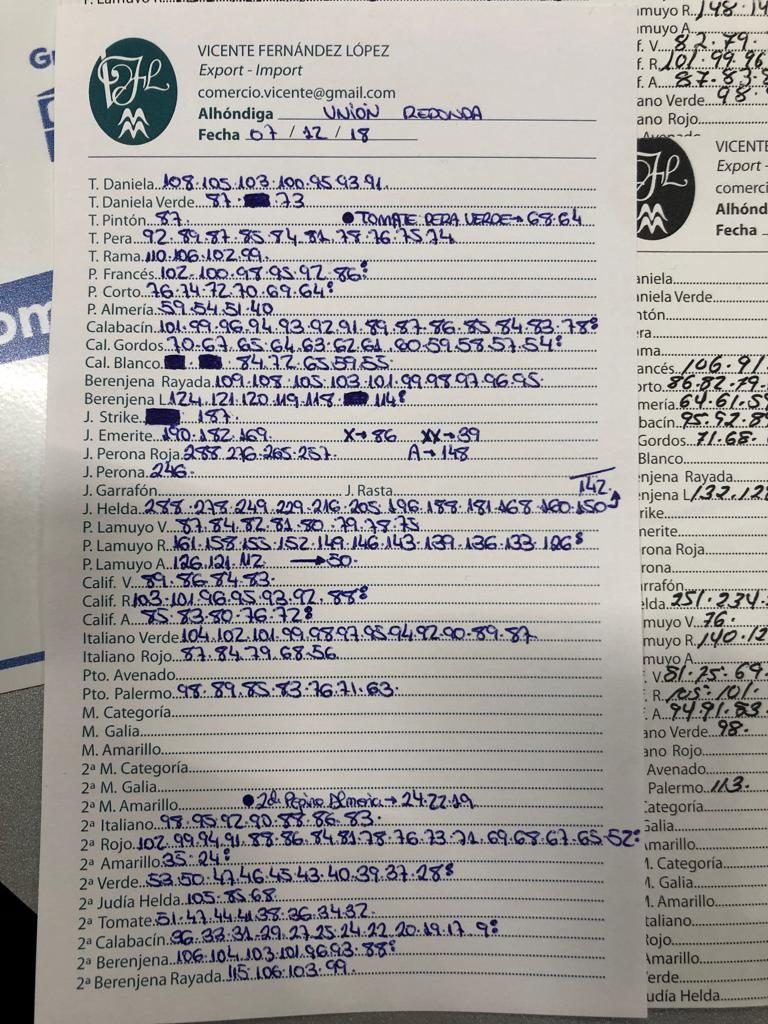 VICENTE FERNÁNDEZ LÓPEZ
Export - Import
comercio.vicente@gmail.com
Alhóndiga UNIÓN REDONDA
Fecha 07 / 12 / 18
T. Daniela 108.105.103.100.95.93.91.
T. Daniela Verde 87. 73
T. Pintón 87. ●TOMATE PERA VERDE→68.64
T. Pera 92.89.87.85.84.81.78.76.75.74
T. Rama 110.106.102.99.
P. Francés 102.100.98.95.92.86:
P. Corto 76.74.72.70.69.64:
P. Almería 59.54.51.40
Calabacín 101.99.96.94.93.92.91.89.87.86.85.84.83.78:
Cal. Gordos 70.67.65.64.63.62.61.60.59.58.57.54:
Cal. Blanco 84.72.65.59.55.
Berenjena Rayada 109.108.105.103.101.99.98.97.96.95.
Berenjena L 124.121.120.119.118. 114:
J. Strike 187.
J. Emerite 190.182.169. X→86 XX→39
J. Perona Roja 288.276.265.257. A→148
J. Perona 246.
J. Garrafón J. Rasta 142
J. Helda 288.278.249.229.216.205.196.188.181.168.160.150
P. Lamuyo V 87.84.82.81.80.79.78.75
P. Lamuyo R 161.158.155.152.149.146.143.139.136.133.126:
P. Lamuyo A 126.121.112 →50.
Calif. V 89.86.84.83.
Calif. R 103.101.96.95.93.92.88:
Calif. A 85.83.80.76.72:
Italiano Verde 104.102.101.99.98.97.95.94.92.90.89.87
Italiano Rojo 87.84.79.68.56
Pto. Avenado
Pto. Palermo 98.89.85.83.76.71.63.
M. Categoría
M. Galia
M. Amarillo
2ª M. Categoría
2ª M. Galia
2ª M. Amarillo ●2da Pepino Almeria→24.22.19
2ª Italiano 98.95.92.90.88.86.83.
2ª Rojo 102.99.94.91.88.86.84.81.78.76.73.71.69.68.67.65.52:
2ª Amarillo 35.24:
2ª Verde 53.50.47.46.45.43.40.39.37.28:
2ª Judía Helda 105.85.68
2ª Tomate 51.47.44.41.38.36.34.32.
2ª Calabacín 36.33.31.29.27.25.24.22.20.19.17.9:
2ª Berenjena 106.104.103.101.96.93.88:
2ª Berenjena Rayada 115.106.103.99.
VICENTE
Export -
comerci
Alhónd
Fecha
aniela
aniela Verde
ntón
era
ama
ancés 106.91
orto 86.82.79.
mería 64.61.59
bacín 95.92.89
Gordos 71.68.
Blanco
enjena Rayada
enjena L 132.128
rike
merite
erona Roja
erona
arrafón
elda 251.234.
muyo V 76.
muyo R 140.12
muyo A
V 81.75.69
R 105.101.
A 94.91.83
ano Verde 98.
ano Rojo
Avenado
Palermo 113.
Categoría
Galia
Amarillo
M. Categoría
M. Galia
M. Amarillo
taliano
Rojo
Amarillo
Verde
Judía Helda